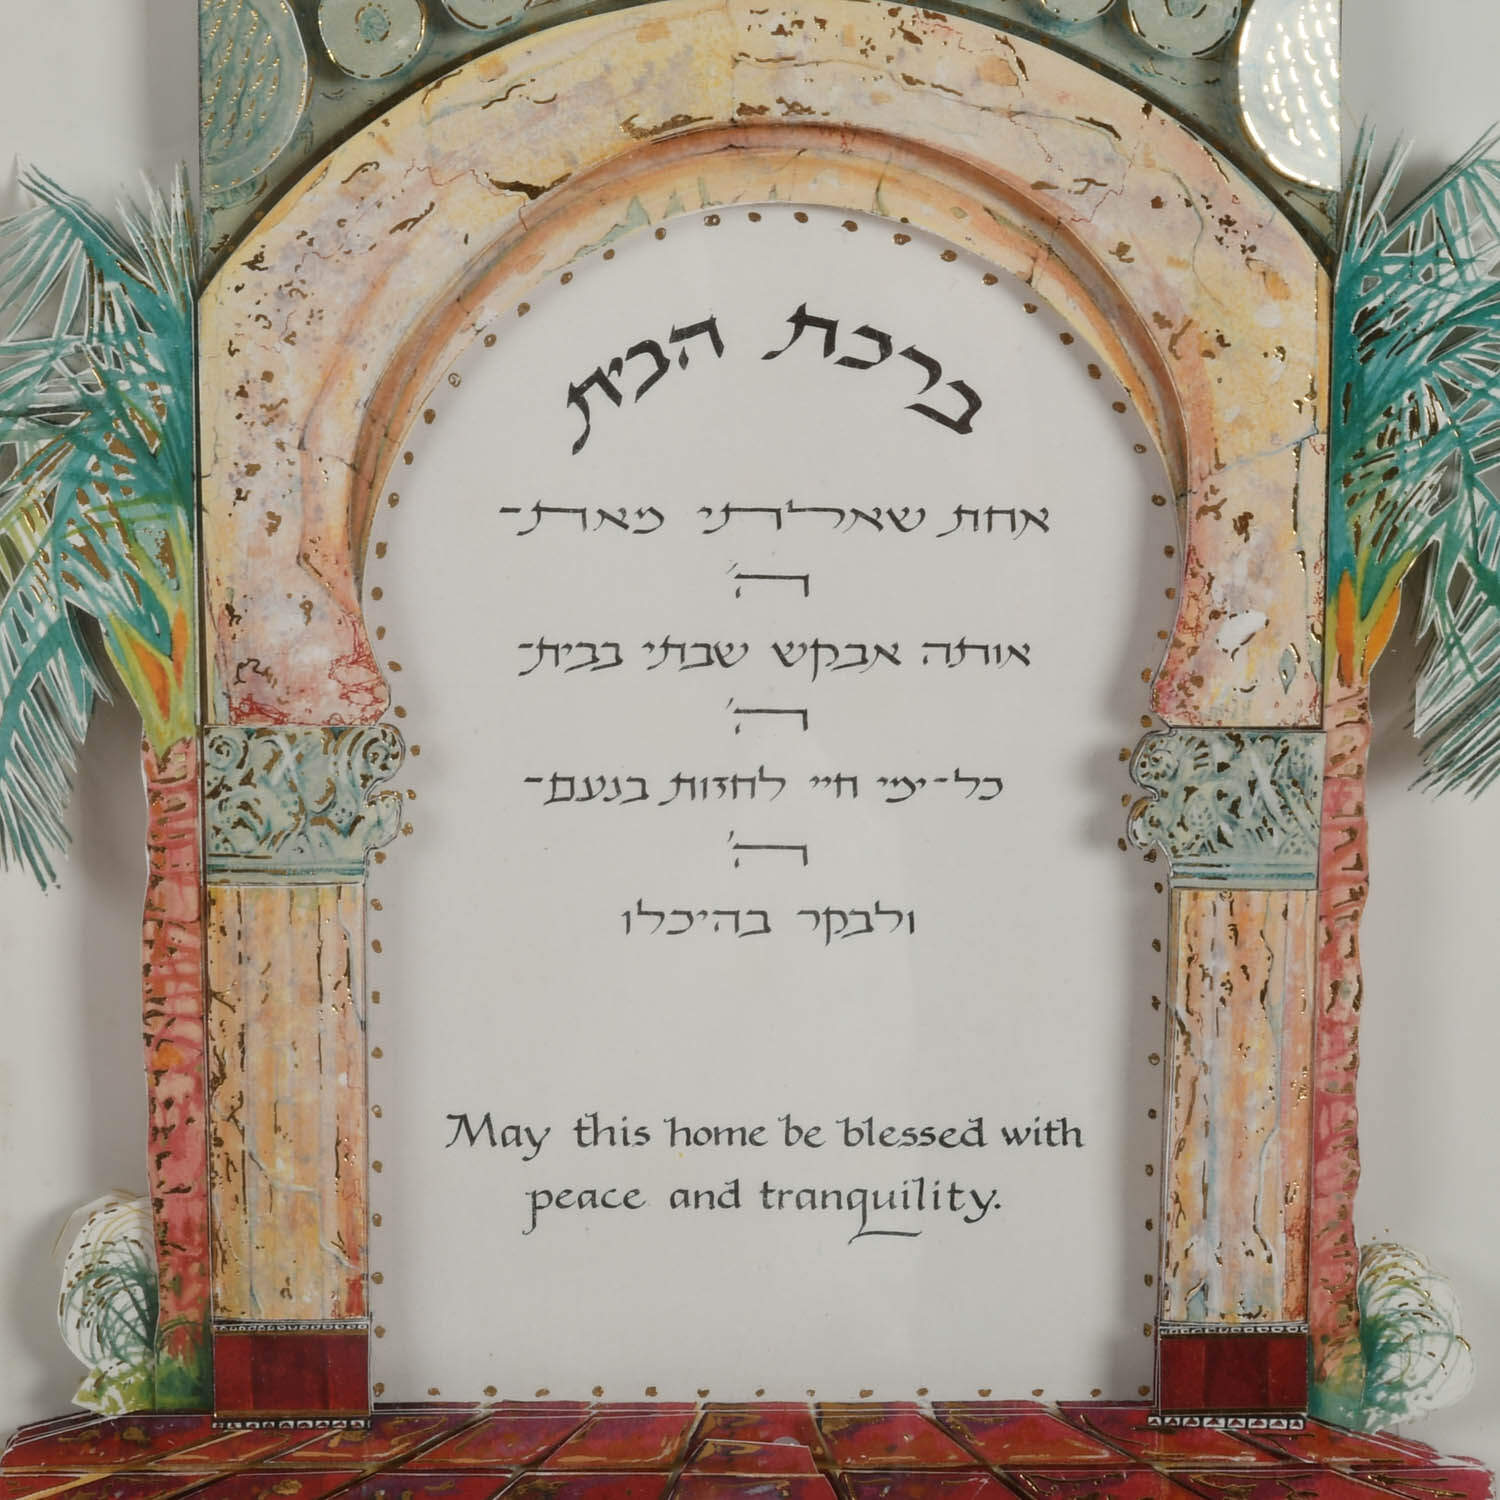 ברכת הבית
אחת שאלתי מאת-
ה'
אותה אבקש שבתי בבית-
ה'
כל-ימי חיי לחזות בנעם-
ה'
ולבקר בהיכלו
May this home be blessed with
peace and tranquility.